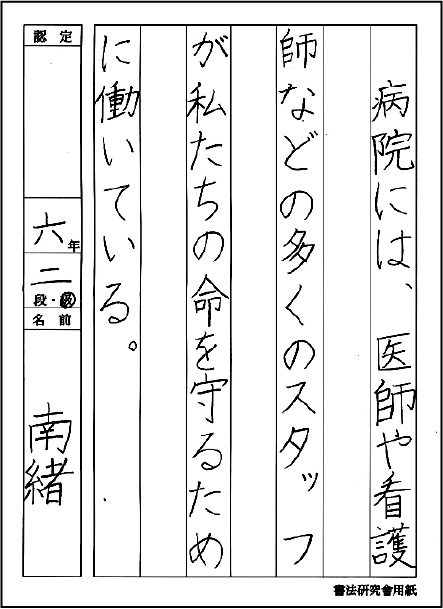 病院には、医師や看護
師などの多くのスタッフ
が私たちの命を守るため
に働いている。
認定
六年
二
段・級
名前
南緒
書法研究會用紙